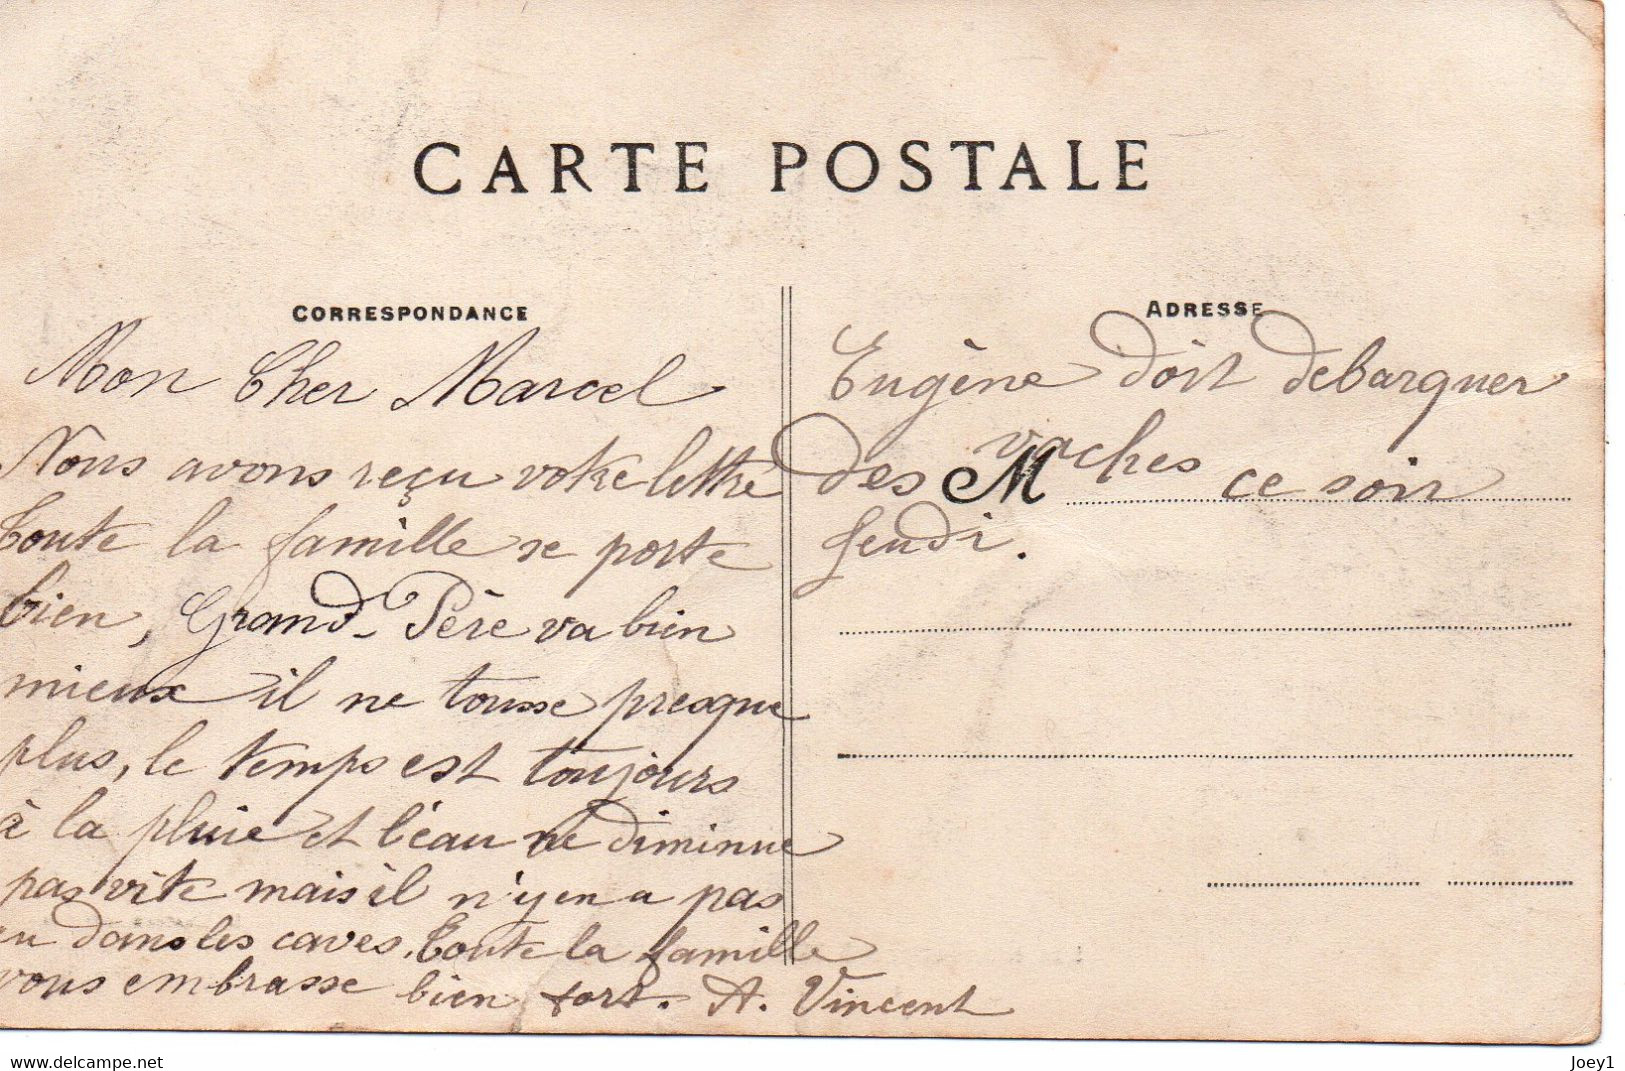 CARTE POSTALE
CORRESPONDANCE
Mon Cher Marcel
Nous avons reçu votre lettre
Toute la famille se porte
bien, Grand-Père va bien
mieux il ne tousse presque
plus, le temps est toujours
à la pluie et l'eau ne diminue
pas vite mais il n'y en a pas
eu dans les caves. Toute la famille
vous embrasse bien fort. A. Vincent
ADRESSE
Eugène doit debarquer
des vaches ce soir
M
Jeudi.
www.delcampe.net
Joey1